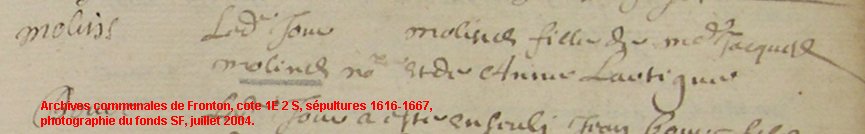 molinis Led^t Jour molines fille de m^e Jacques
molines no^re et de Anne Lartigue
Archives communales de Fronton, cote 1E 2 S, sépultures 1616-1667,
photographie du fonds SF, juillet 2004.
Jour a esté ensevely Jean